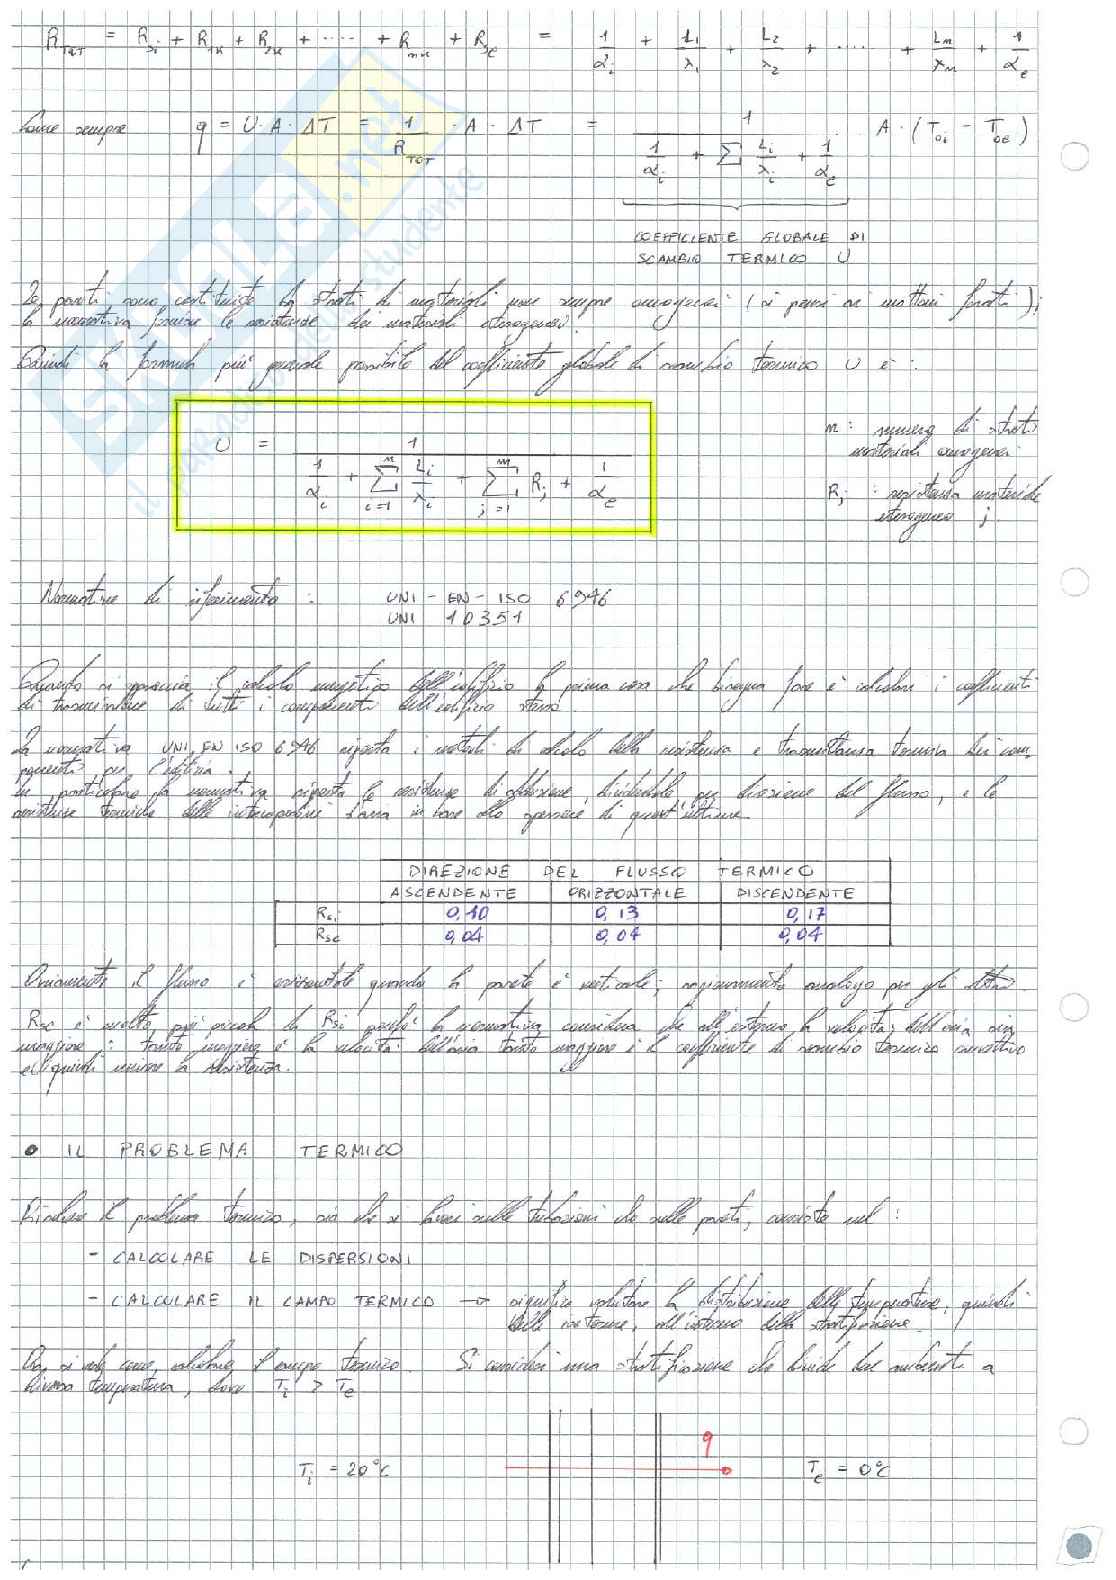 R_TOT = R_si + R_1k + R_2k + ..... + R_mk + R_se = 1/α_i + L_1/λ_1 + L_2/λ_2 + ..... + L_m/λ_m + 1/α_e
Come sempre q = U · A · ΔT = 1/R_TOT · A · ΔT = 1/(1/α_i + Σ L_i/λ_i + 1/α_e) · A · (T_∞i - T_∞e)
COEFFICIENTE GLOBALE DI
SCAMBIO TERMICO U
Le pareti sono costituite da strati di materiali non sempre omogenei (si pensi ai mattoni forati);
la normativa fornisce le resistenze dei materiali eterogenei.
Quindi la formula più generale possibile del coefficiente globale di scambio termico U è :
U = 1/(1/α_i + Σ_{i=1}^{n} L_i/λ_i + Σ_{j=1}^{m} R_j + 1/α_e)
n : numero di strati
materiali omogenei
R_j : resistenza materiale
eterogeneo j
Normative di riferimento : UNI - EN - ISO 6946
UNI 10351
Quando si approccia il calcolo energetico dell'edificio la prima cosa che bisogna fare è calcolare i coefficienti
di trasmittanza di tutti i componenti dell'edificio stesso.
La normativa UNI EN ISO 6946 riporta i metodi di calcolo della resistenza e trasmittanza termica dei com
ponenti per l'edilizia.
In particolare la normativa riporta le resistenze di adduzione, dividendole per direzione del flusso, e le
resistenze termiche delle intercapedini d'aria in base allo spessore di quest'ultime.
DIREZIONE DEL FLUSSO TERMICO
ASCENDENTE ORIZZONTALE DISCENDENTE
R_si 0,10 0,13 0,17
R_se 0,04 0,04 0,04
Ovviamente il flusso è orizzontale quando la parete è verticale; ragionamento analogo per gli altri
R_se è molto più piccola di R_si perché la normativa considera che all'esterno la velocità dell'aria sia
maggiore : tanto maggiore è la velocità dell'aria tanto maggiore è il coefficiente di scambio termico convettivo
e quindi minore la resistenza.
• IL PROBLEMA TERMICO
Risolvere il problema termico, sia che si lavori sulle tubazioni che sulle pareti, consiste nel :
- CALCOLARE LE DISPERSIONI
- CALCOLARE IL CAMPO TERMICO → significa valutare la distribuzione delle temperature, quindi
all'interno della stratificazione.
Ora si vede come calcolare il campo termico. Si consideri una stratificazione che divide due ambienti a
diversa temperatura, dove T_i > T_e
q
T_i = 20°C T_e = 0°C